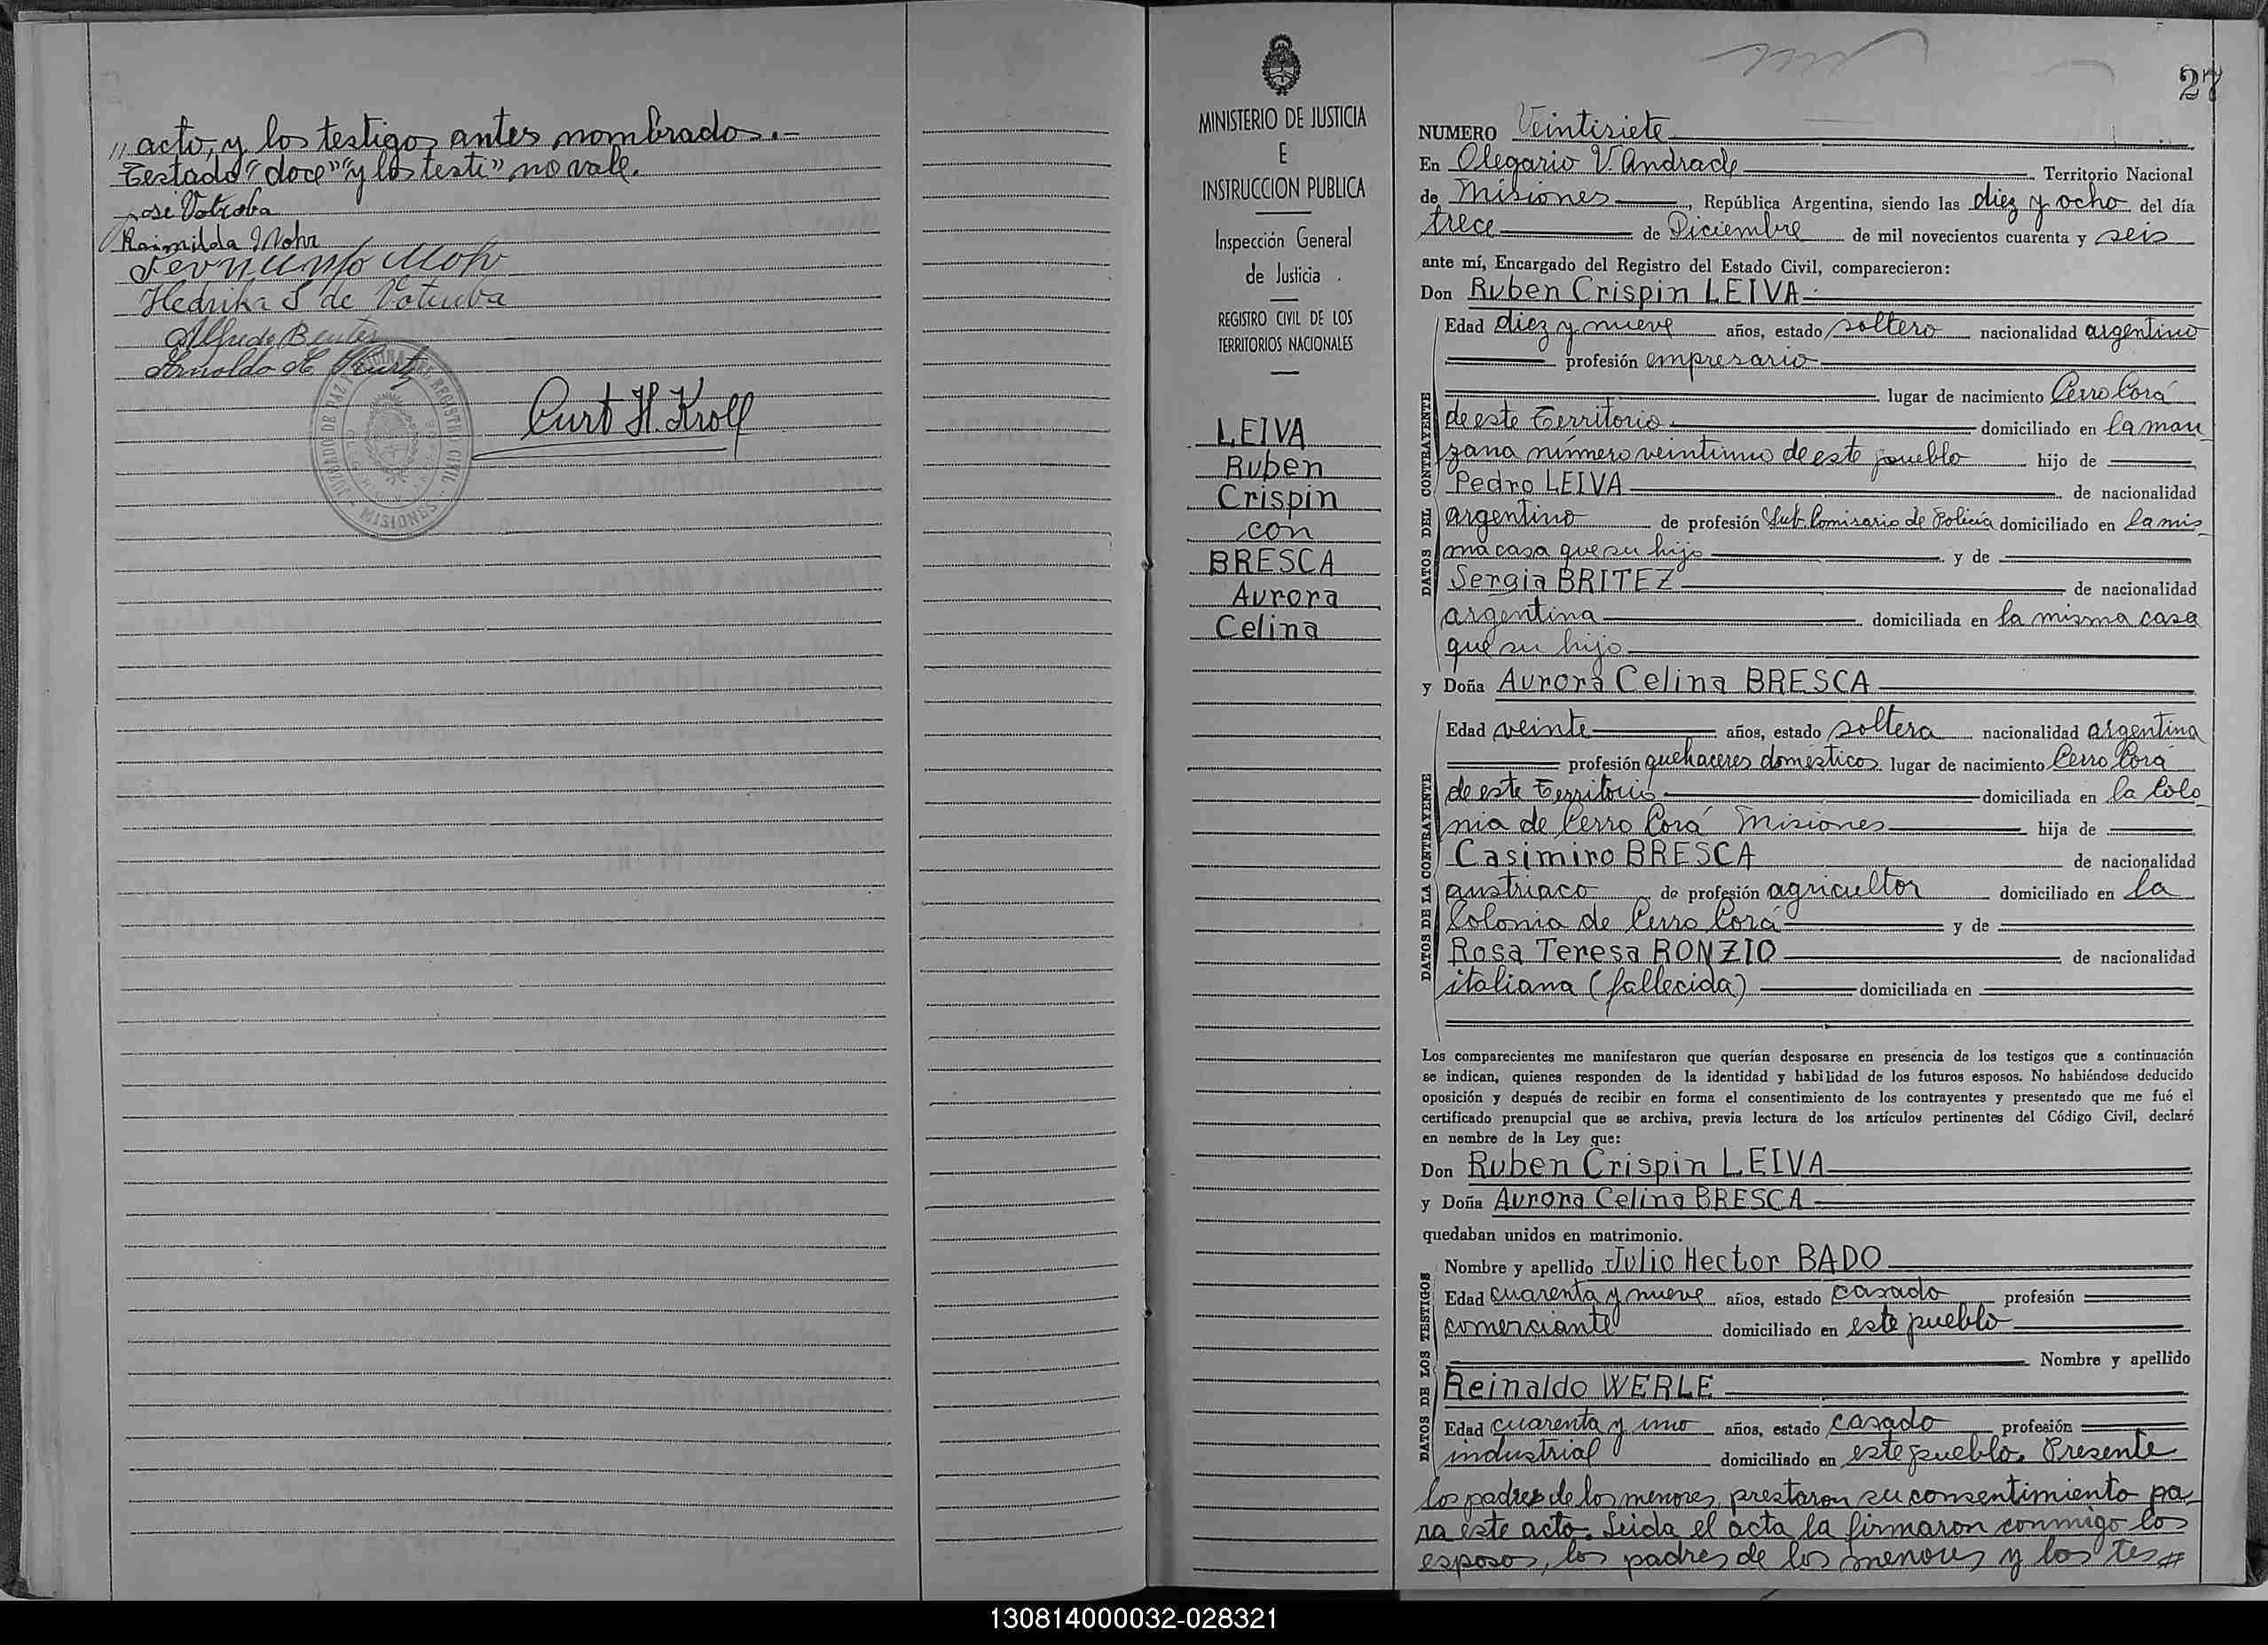 " acto, y los testigos antes nombrados.-
Testado "doce" "y los testi" no vale.
Jose Votroba
Reimilda Mohr
Mohr
Hedrika S de Votruba
Alfredo Beuter
Arnoldo H Kurtz
JUZGADO DE PAZ REGISTRO CIVIL
MISIONES
Curt H. Kroll
MINISTERIO DE JUSTICIA
E
INSTRUCCION PUBLICA
Inspección General
de Justicia
REGISTRO CIVIL DE LOS
TERRITORIOS NACIONALES
LEIVA
Ruben
Crispin
con
BRESCA
Aurora
Celina
27
NUMERO Veintisiete
En Olegario V. Andrade Territorio Nacional
de Misiones, República Argentina, siendo las diez y ocho del día
trece de Diciembre de mil novecientos cuarenta y seis
ante mí, Encargado del Registro del Estado Civil, comparecieron:
Don Ruben Crispin LEIVA
DATOS DEL CONTRAYENTE
Edad diez y nueve años, estado soltero nacionalidad argentino
profesión empresario
lugar de nacimiento Cerro Corá
de este Territorio domiciliado en la man
zana número veintiuno de este pueblo hijo de
Pedro LEIVA de nacionalidad
argentino de profesión Sub-Comisario de Policía domiciliado en la mis
ma casa que su hijo y de
Sergia BRITEZ de nacionalidad
argentina domiciliada en la misma casa
que su hijo
y Doña Aurora Celina BRESCA
DATOS DE LA CONTRAYENTE
Edad veinte años, estado soltera nacionalidad argentina
profesión quehaceres domésticos lugar de nacimiento Cerro Corá
de este Territorio domiciliada en la Colo
nia de Cerro Corá Misiones hija de
Casimiro BRESCA de nacionalidad
austriaco de profesión agricultor domiciliado en la
Colonia de Cerro Corá y de
Rosa Teresa RONZIO de nacionalidad
italiana (fallecida) domiciliada en
Los comparecientes me manifestaron que querían desposarse en presencia de los testigos que a continuación
se indican, quienes responden de la identidad y habilidad de los futuros esposos. No habiéndose deducido
oposición y después de recibir en forma el consentimiento de los contrayentes y presentado que me fué el
certificado prenupcial que se archiva, previa lectura de los artículos pertinentes del Código Civil, declaré
en nombre de la Ley que:
Don Ruben Crispin LEIVA
y Doña Aurora Celina BRESCA
quedaban unidos en matrimonio.
DATOS DE LOS TESTIGOS
Nombre y apellido Julio Hector BADO
Edad cuarenta y nueve años, estado casado profesión
comerciante domiciliado en este pueblo
Nombre y apellido
Reinaldo WERLE
Edad cuarenta y uno años, estado casado profesión
industrial domiciliado en este pueblo. Presente
los padres de los menores, prestaron su consentimiento pa-
ra este acto. Leida el acta la firmaron conmigo los
esposos, los padres de los menores y los tes//
130814000032-028321